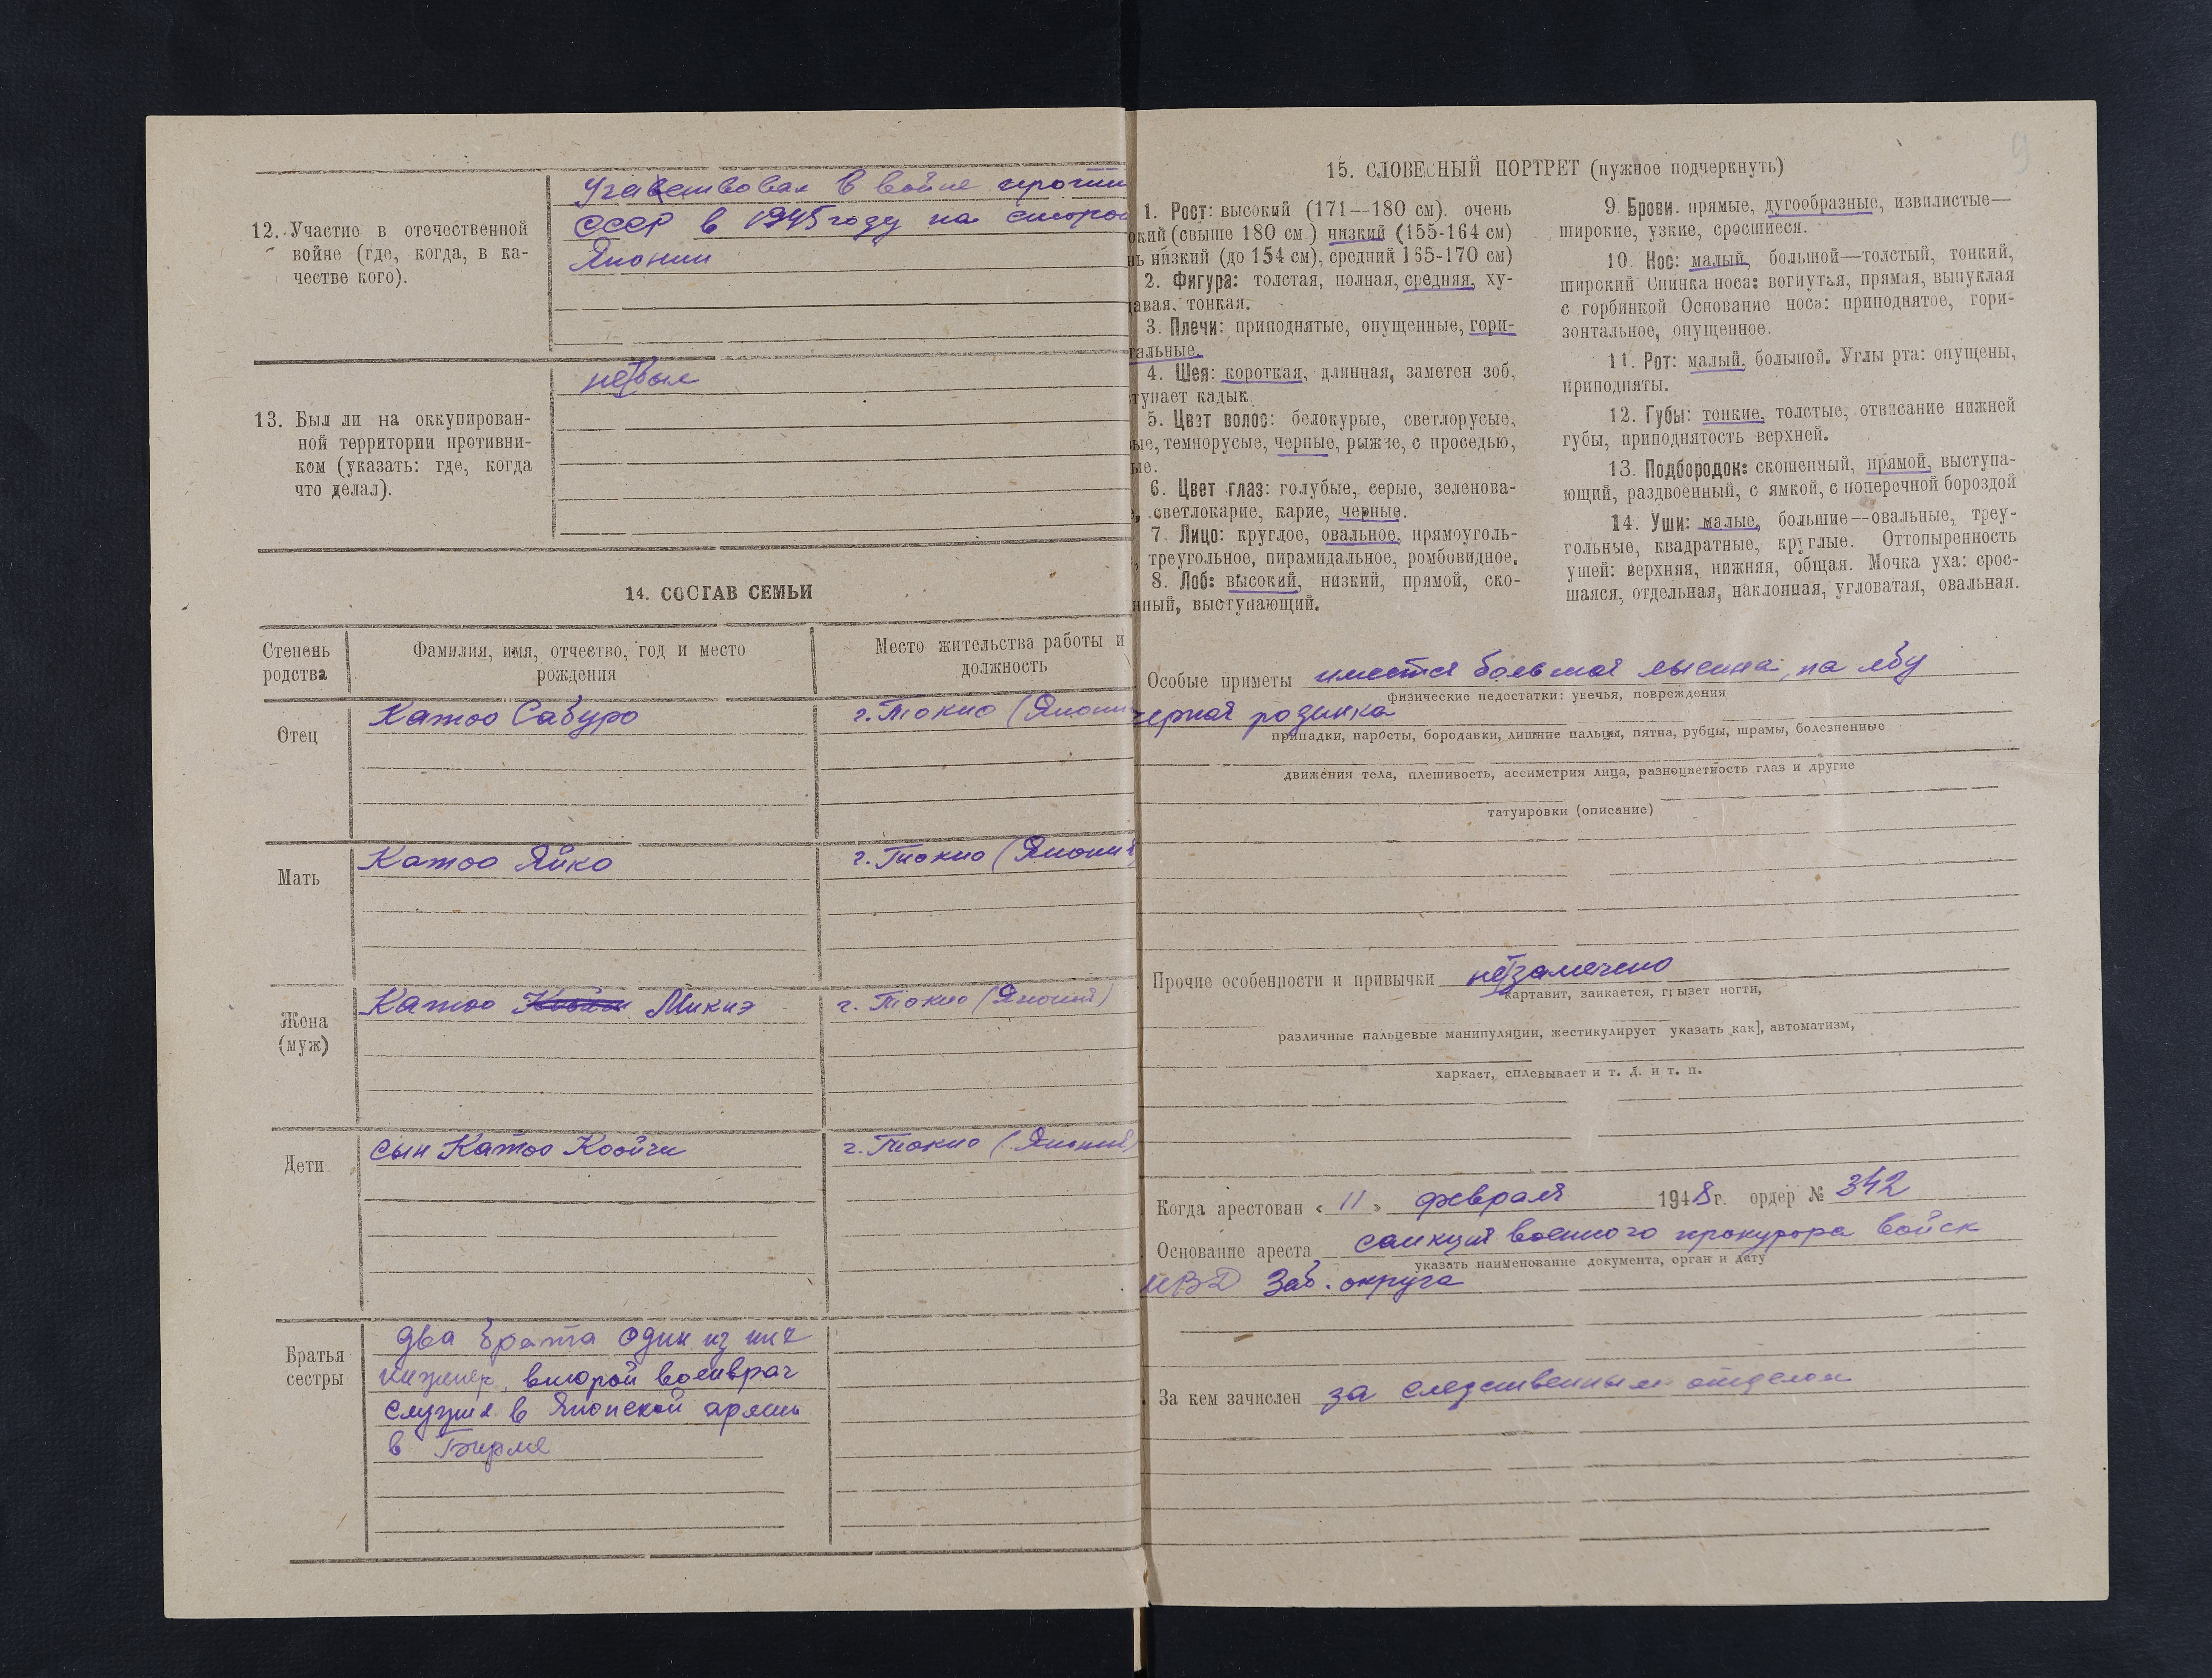 12. Участие в отечественной
войне (где, когда, в ка-
честве кого).
Учавствовал в войне против
СССР в 1945 году на сторо
Японии
13. Был ли на оккупирован-
ной территории противни-
ком (указать: где, когда
что делал).
не был
14. СОСТАВ СЕМЬИ
Степень
родства
Фамилия, имя, отчество, год и место
рождения
Место жительства работы и
должность
Отец
Катоо Сабуро
г. Токио (Япони
Мать
Катоо Яйко
г. Токио (Япония
Жена
(муж)
Катоо Микиэ
г. Токио (Япония)
Дети
сын Катоо Коойчи
г. Токио (Япония)
Братья
сестры
два брата один из них
инженер, второй военврач
служил в Японской армии
в Бирме
9
15. СЛОВЕСНЫЙ ПОРТРЕТ (нужное подчеркнуть)
1. Рост: высокий (171—180 см). очень
окий (свыше 180 см.) низкий (155-164 см)
нь низкий (до 154 см), средний 165-170 см)
2. Фигура: толстая, полная, средняя, ху-
давая, тонкая.
3. Плечи: приподнятые, опущенные, гори-
тальные.
4. Шея: короткая, длинная, заметен зоб,
тупает кадык.
5. Цвет волос: белокурые, светлорусые,
ые, темнорусые, черные, рыжие, с проседью,
ые.
6. Цвет глаз: голубые, серые, зеленова-
, светлокарие, карие, черные.
7. Лицо: круглое, овальное, прямоуголь-
, треугольное, пирамидальное, ромбовидное.
8. Лоб: высокий, низкий, прямой, ско-
нный, выступающий.
9. Брови. прямые, дугообразные, извилистые—
широкие, узкие, сросшиеся.
10. Нос: малый, большой—толстый, тонкий,
широкий Спинка носа: вогнутая, прямая, выпуклая
с горбинкой Основание носа: приподнятое, гори-
зонтальное, опущенное.
11. Рот: малый, большой. Углы рта: опущены,
приподняты.
12. Губы: тонкие, толстые, отвисание нижней
губы, приподнятость верхней.
13. Подбородок: скошенный, прямой, выступа-
ющий, раздвоенный, с ямкой, с поперечной бороздой
14. Уши: малые, большие—овальные, треу-
гольные, квадратные, круглые. Оттопыренность
ушей: верхняя, нижняя, общая. Мочка уха: срос-
шаяся, отдельная, наклонная, угловатая, овальная.
Особые приметы имеется большая лысина, на лбу
физические недостатки: увечья, повреждения
черная родинка
припадки, наросты, бородавки, лишние пальцы, пятна, рубцы, шрамы, болезненные
движения тела, плешивость, ассиметрия лица, разноцветность глаз и другие
татуировки (описание)
Прочие особенности и привычки не замечено
картавит, заикается, грызет ногти,
различные пальцевые манипуляции, жестикулирует указать как], автоматизм,
харкает, сплевывает и т. д. и т. п.
Когда арестован « 11 » февраля 1948 г. ордер № 342
Основание ареста санкция военного прокурора войск
указать наименование документа, орган и дату
МВД Заб. округа
За кем зачислен за следственным отделом